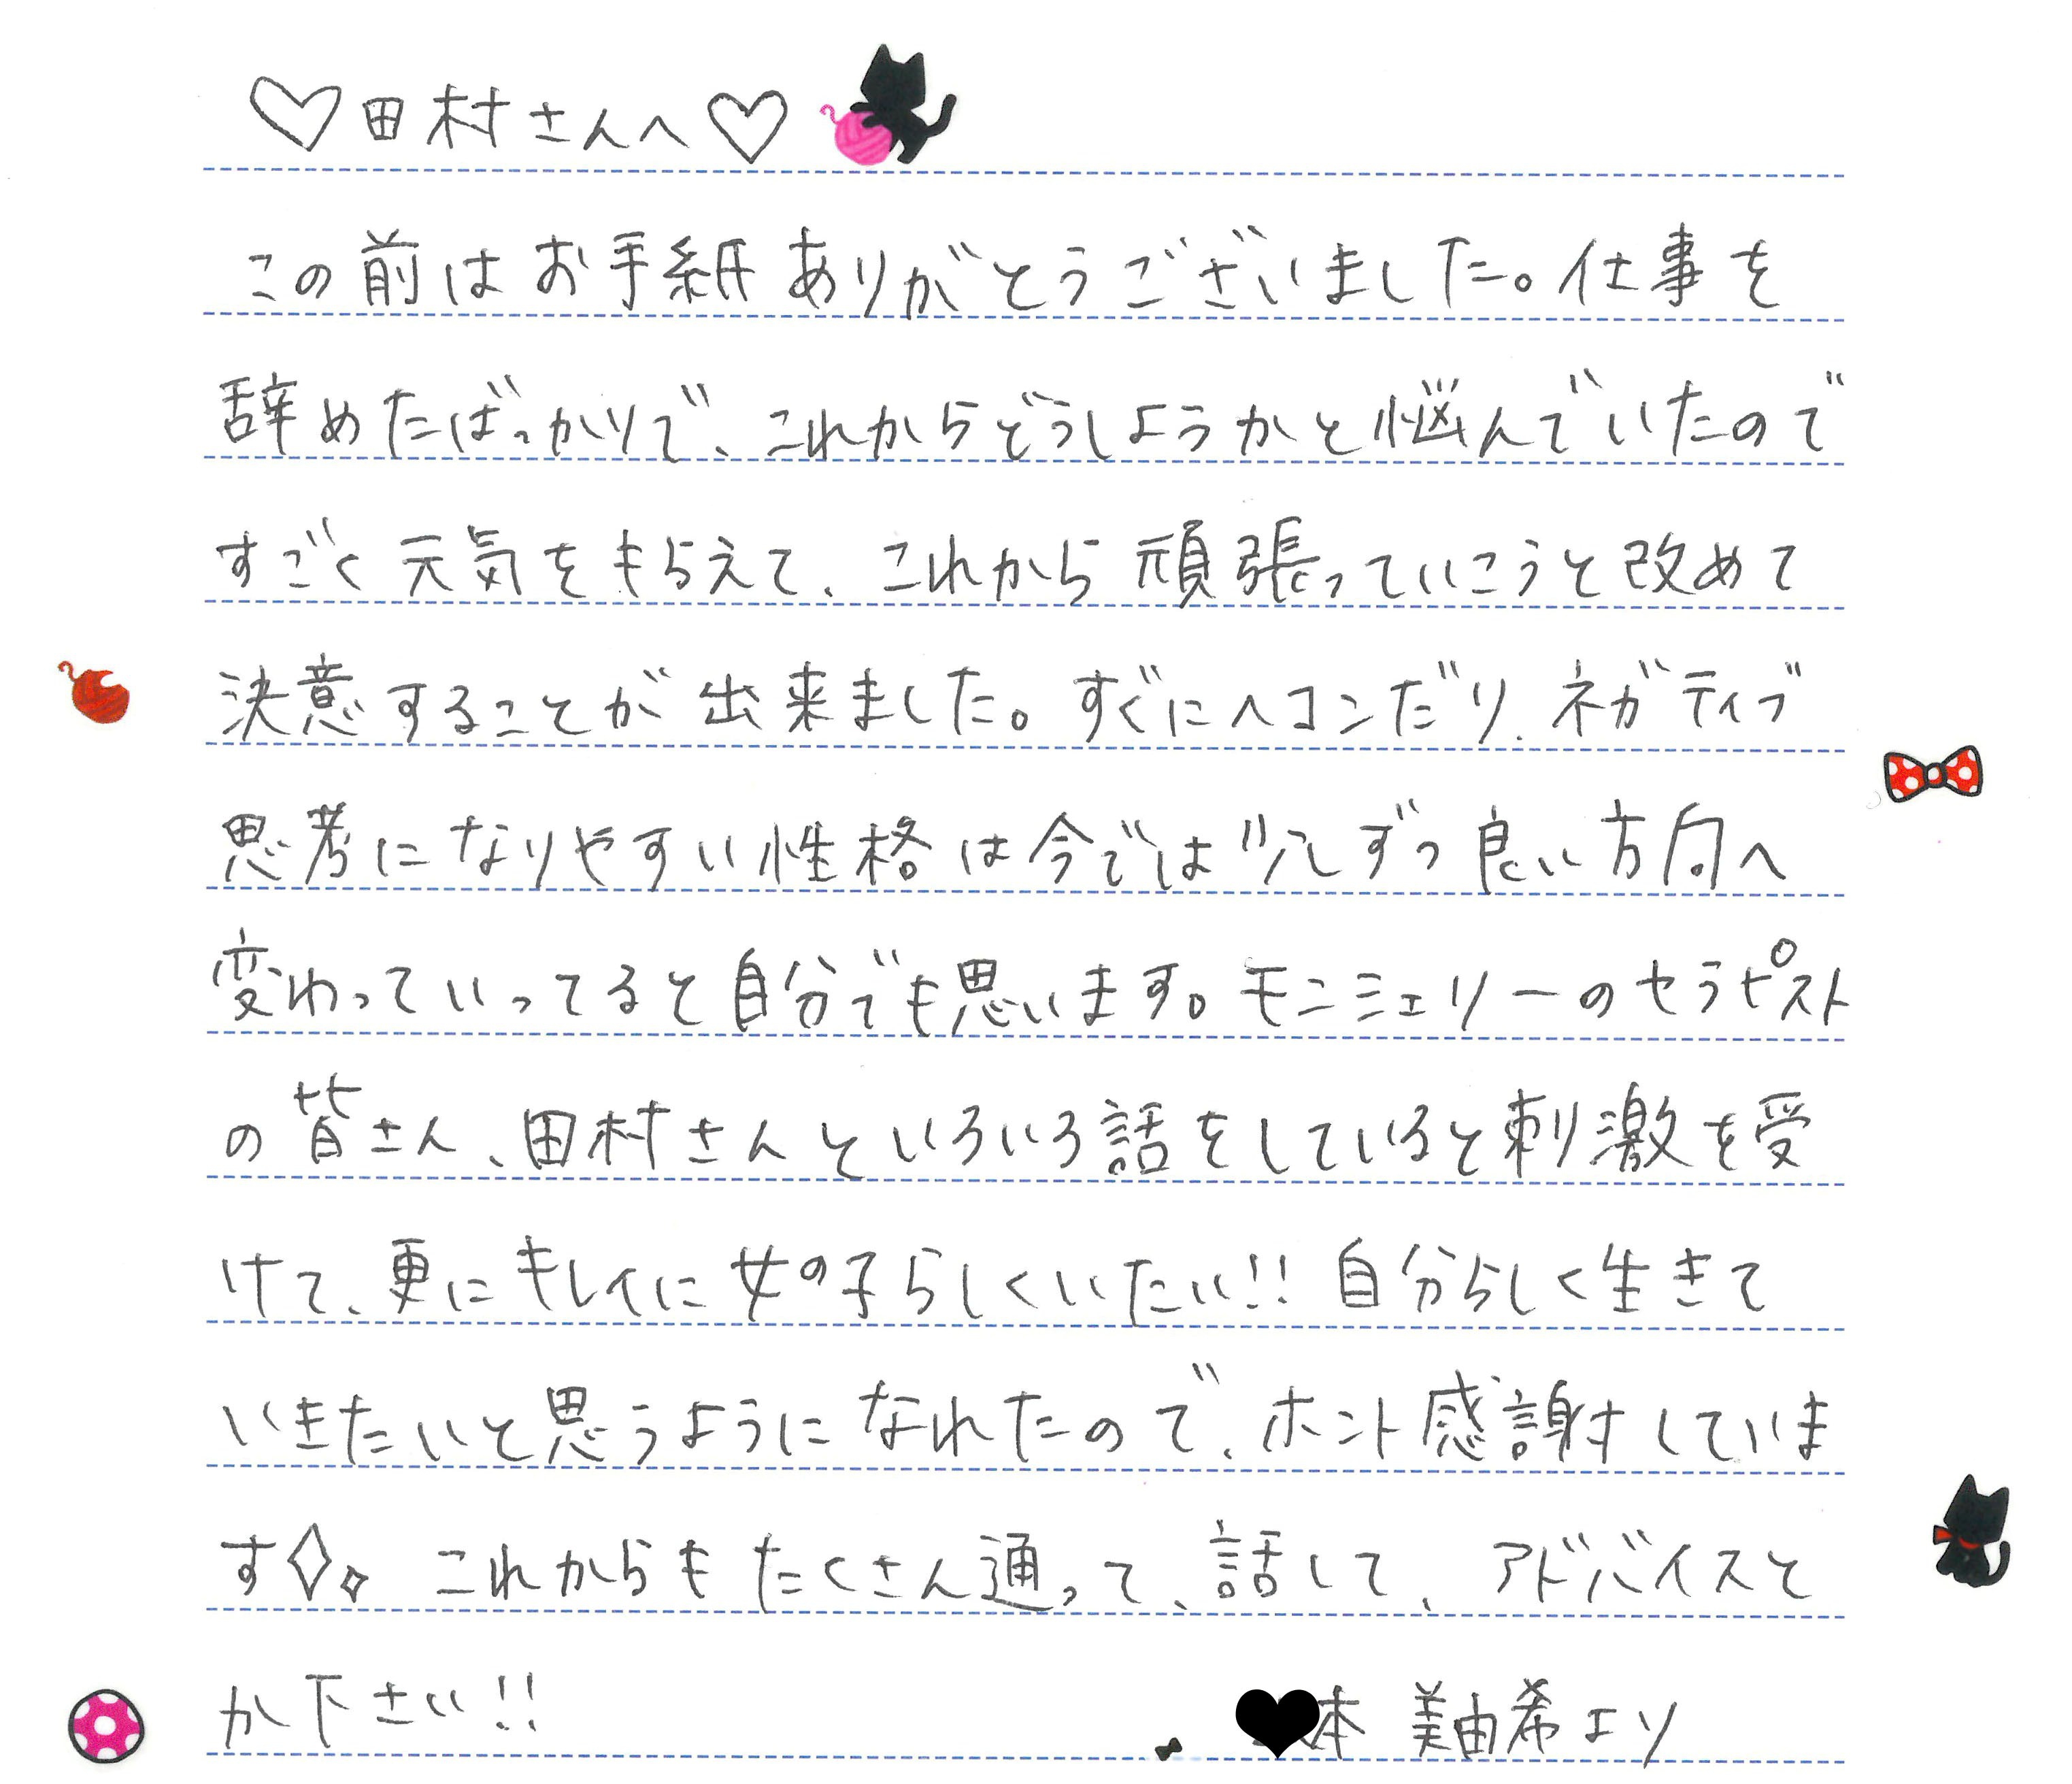 ♡田村さんへ♡
この前はお手紙ありがとうございました。仕事を
辞めたばっかりで、これからどうしようかと悩んでいたので
すごく元気をもらえて、これから頑張っていこうと改めて
決意することが出来ました。すぐにヘコンだり、ネガティブ
思考になりやすい性格は今では少しずつ良い方向へ
変わっていってると自分でも思います。モンシェリーのセラピスト
の皆さん、田村さんといろいろ話をしていると刺激を受
けて、更にキレイに女の子らしくいたい!! 自分らしく生きて
いきたいと思うようになれたので、ホント感謝していま
す これからもたくさん通って、話して、アドバイスと
か下さい!!
本 美由希より